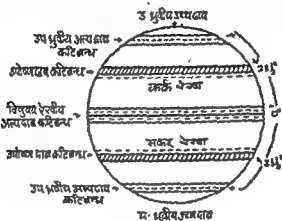 उ ध्रुवीय उच्च दाब
उप ध्रुवीय अल्प दाब
कटिबन्ध
उपोष्ण दाब कटिबन्ध
कर्क रेखा
23½°
विषुवत रेखीय
अल्प दाब कटिबन्ध
0°
मकर रेखा
उपोष्ण दाब कटिबन्ध
23½°
उप ध्रुवीय अल्प दाब
कटिबन्ध
द. ध्रुवीय उच्च दाब